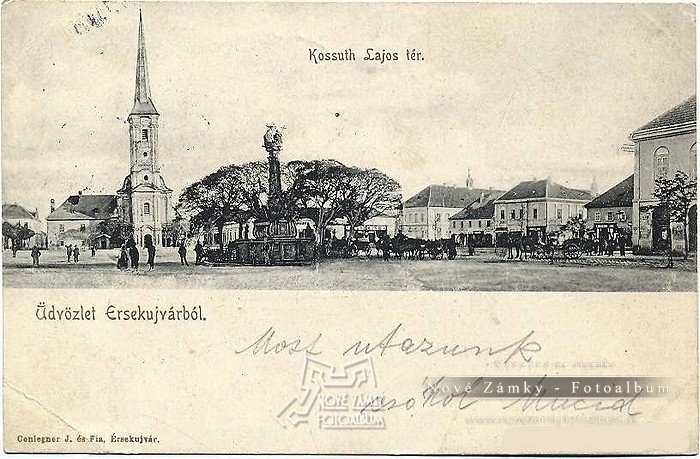 Kossuth Lajos tér.
Üdvözlet Ersekujvárból.
Most utazunk
Nové Zámky - Fotoalbum
csókol
NOVÉ ZÁMKY
FOTOALBUM
Conlegner J. és Fia, Érsekujvár.